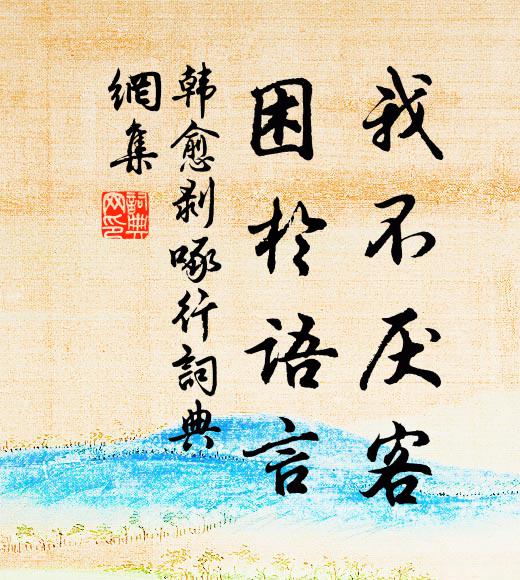 我不厌客
困於語言
韩愈剥啄行詞典
網集
詞典
网印